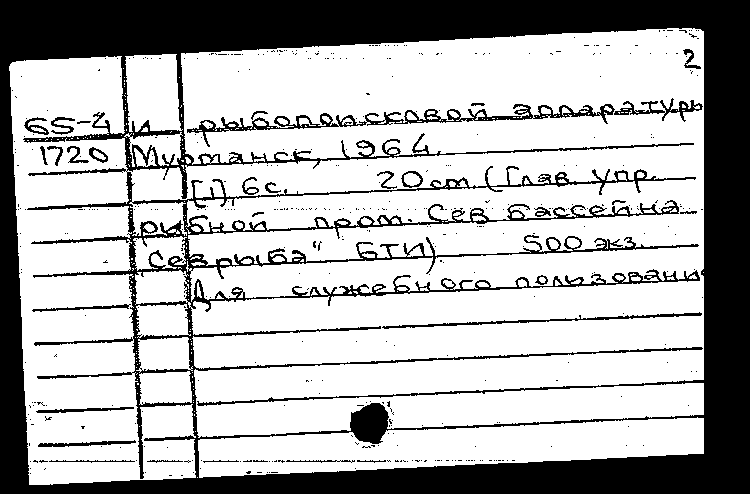 2
65-4 и рыбопоисковой аппаратуры
1720 Мурманск, 1964.
[1], 6с. 20 см. (Глав. упр.
рыбной пром. Сев бассейна
"Севрыба" БТИ). 500 экз.
Для служебного пользования